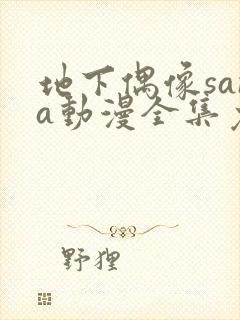 地下偶像sa
a動漫全集
野狸